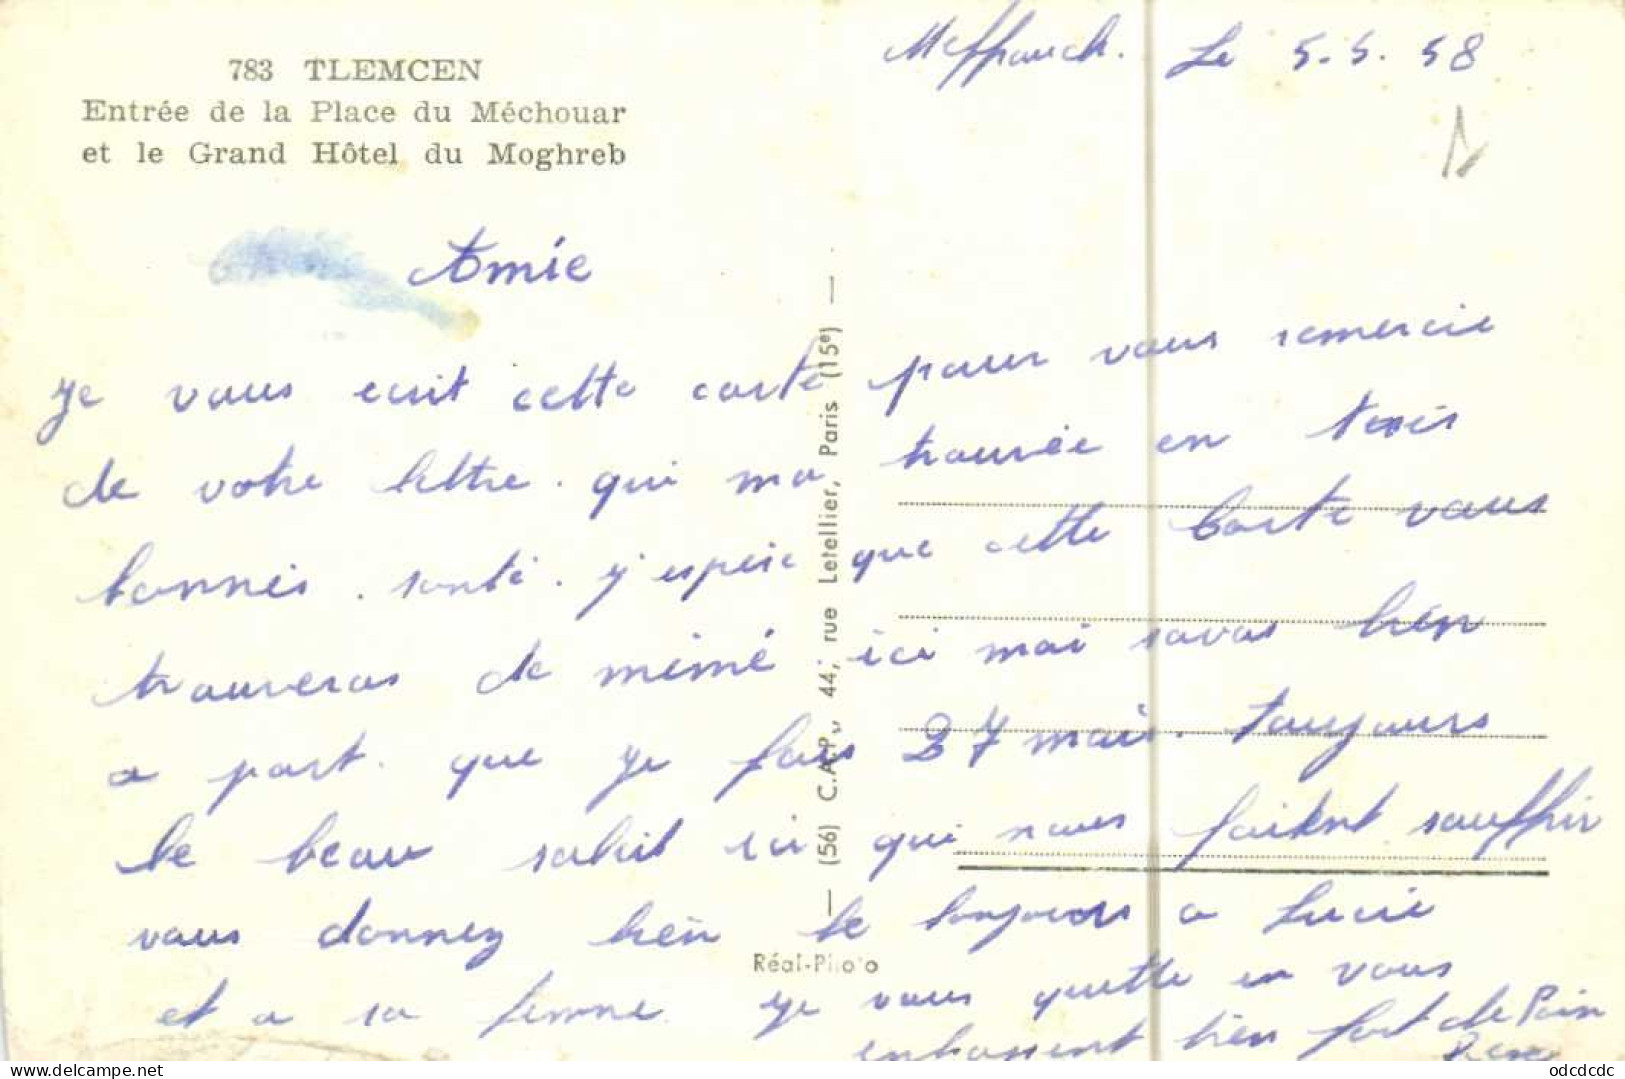 783 TLEMCEN
Entrée de la Place du Méchouar
et le Grand Hôtel du Moghreb
Le 5.5.58
Amie
Je vous ecrit cette carte pour vous remercie
de votre lettre. qui ma trouvée en
bonnes. santé. j'espere que cette Carte vous
trouveras de mémé ici moi savas bien
a part. que je fais 27 mois. toujours
le beau soleil ici qui nous faitent souffrir
vous donnez bien le bonjours a Lucie
et a sa femme. Je vous quitte en vous
enbrassent bien fort de
(56) C.A.P., 44, rue Letellier, Paris (15e)
Réal-Photo
odcdcdc